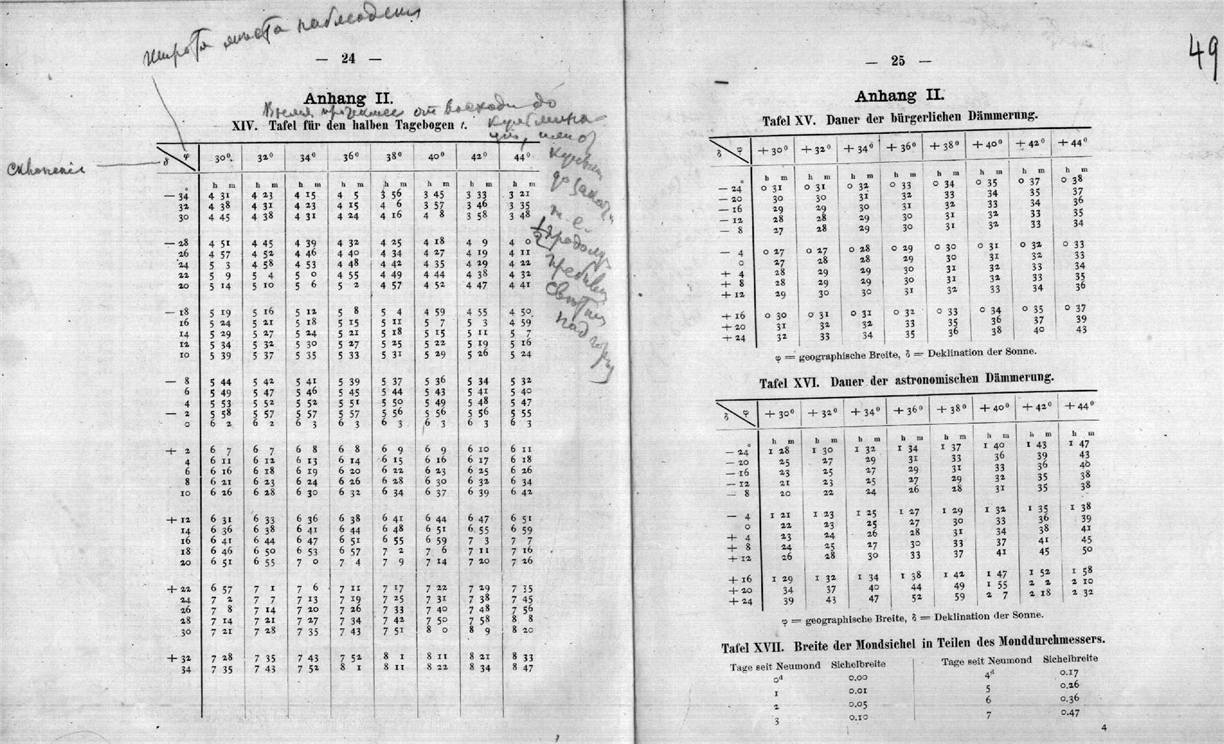 широта места наблюдения
49
— 24 —
Anhang II.
Время протекшее от восхода до
кульмина-
XIV. Tafel für den halben Tagebogen t.
до
т. е.
½
над
δ φ 30° 32° 34° 36° 38° 40° 42° 44°
h m h m h m h m h m h m h m h m
— 34° 4 31 4 23 4 15 4 5 3 56 3 45 3 33 3 21
32 4 38 4 31 4 23 4 15 4 6 3 57 3 46 3 35
30 4 45 4 38 4 31 4 24 4 16 4 8 3 58 3 48
— 28 4 51 4 45 4 39 4 32 4 25 4 18 4 9 4 0
26 4 57 4 52 4 46 4 40 4 34 4 27 4 19 4 11
24 5 3 4 58 4 53 4 48 4 42 4 35 4 29 4 22
22 5 9 5 4 5 0 4 55 4 49 4 44 4 38 4 32
20 5 14 5 10 5 6 5 2 4 57 4 52 4 47 4 41
— 18 5 19 5 16 5 12 5 8 5 4 4 59 4 55 4 50
16 5 24 5 21 5 18 5 15 5 11 5 7 5 3 4 59
14 5 29 5 27 5 24 5 21 5 18 5 15 5 11 5 7
12 5 34 5 32 5 30 5 27 5 25 5 22 5 19 5 16
10 5 39 5 37 5 35 5 33 5 31 5 29 5 26 5 24
— 8 5 44 5 42 5 41 5 39 5 37 5 36 5 34 5 32
6 5 49 5 47 5 46 5 45 5 44 5 43 5 41 5 40
4 5 53 5 52 5 52 5 51 5 50 5 49 5 48 5 47
— 2 5 58 5 57 5 57 5 57 5 56 5 56 5 56 5 55
0 6 2 6 2 6 3 6 3 6 3 6 3 6 3 6 3
+ 2 6 7 6 7 6 8 6 8 6 9 6 9 6 10 6 11
4 6 11 6 12 6 13 6 14 6 15 6 16 6 17 6 18
6 6 16 6 18 6 19 6 20 6 22 6 23 6 25 6 26
8 6 21 6 23 6 24 6 26 6 28 6 30 6 32 6 34
10 6 26 6 28 6 30 6 32 6 34 6 37 6 39 6 42
+ 12 6 31 6 33 6 36 6 38 6 41 6 44 6 47 6 51
14 6 36 6 38 6 41 6 44 6 48 6 51 6 55 6 59
16 6 41 6 44 6 47 6 51 6 55 6 59 7 3 7 7
18 6 46 6 50 6 53 6 57 7 2 7 6 7 11 7 16
20 6 51 6 55 7 0 7 4 7 9 7 14 7 20 7 26
+ 22 6 57 7 1 7 6 7 11 7 17 7 22 7 29 7 35
24 7 2 7 7 7 13 7 19 7 25 7 31 7 38 7 45
26 7 8 7 14 7 20 7 26 7 33 7 40 7 48 7 56
28 7 14 7 21 7 27 7 34 7 42 7 50 7 58 8 8
30 7 21 7 28 7 35 7 43 7 51 8 0 8 9 8 20
+ 32 7 28 7 35 7 43 7 52 8 1 8 11 8 21 8 33
34 7 35 7 43 7 52 8 1 8 11 8 22 8 34 8 47
— 25 —
Anhang II.
Tafel XV. Dauer der bürgerlichen Dämmerung.
δ φ + 30° + 32° + 34° + 36° + 38° + 40° + 42° + 44°
h m h m h m h m h m h m h m h m
— 24° 0 31 0 31 0 32 0 33 0 34 0 35 0 37 0 38
— 20 30 30 31 32 33 34 35 37
— 16 29 29 30 31 32 33 34 36
— 12 28 28 29 30 31 32 33 35
— 8 27 28 29 30 31 32 33 34
— 4 0 27 0 27 0 28 0 29 0 30 0 31 0 32 0 33
0 27 28 28 29 30 31 32 33
+ 4 28 29 29 30 31 32 33 34
+ 8 28 29 29 30 31 32 33 35
+ 12 29 30 30 31 32 33 34 36
+ 16 0 30 0 31 0 31 0 32 0 33 0 34 0 35 0 37
+ 20 31 32 32 33 35 36 37 39
+ 24 32 33 34 35 36 38 40 43
φ = geographische Breite, δ = Deklination der Sonne.
Tafel XVI. Dauer der astronomischen Dämmerung.
δ φ + 30° + 32° + 34° + 36° + 38° + 40° + 42° + 44°
h m h m h m h m h m h m h m h m
— 24° 1 28 1 30 1 32 1 34 1 37 1 40 1 43 1 47
— 20 25 27 29 31 33 36 39 43
— 16 23 25 27 29 31 33 36 40
— 12 21 23 25 27 29 32 35 38
— 8 20 22 24 26 28 31 35 38
— 4 1 21 1 23 1 25 1 27 1 29 1 32 1 35 1 38
0 22 23 25 27 30 33 36 39
+ 4 23 24 26 28 31 34 38 41
+ 8 24 25 27 30 33 37 41 45
+ 12 26 28 30 33 37 41 45 50
+ 16 1 29 1 32 1 34 1 38 1 42 1 47 1 52 1 58
+ 20 34 37 40 44 49 1 55 2 2 2 10
+ 24 39 43 47 52 59 2 7 2 18 2 32
φ = geographische Breite, δ = Deklination der Sonne.
Tafel XVII. Breite der Mondsichel in Teilen des Monddurchmessers.
Tage seit Neumond Sichelbreite Tage seit Neumond Sichelbreite
0d 0.00 4d 0.17
1 0.01 5 0.26
2 0.05 6 0.36
3 0.10 7 0.47
4